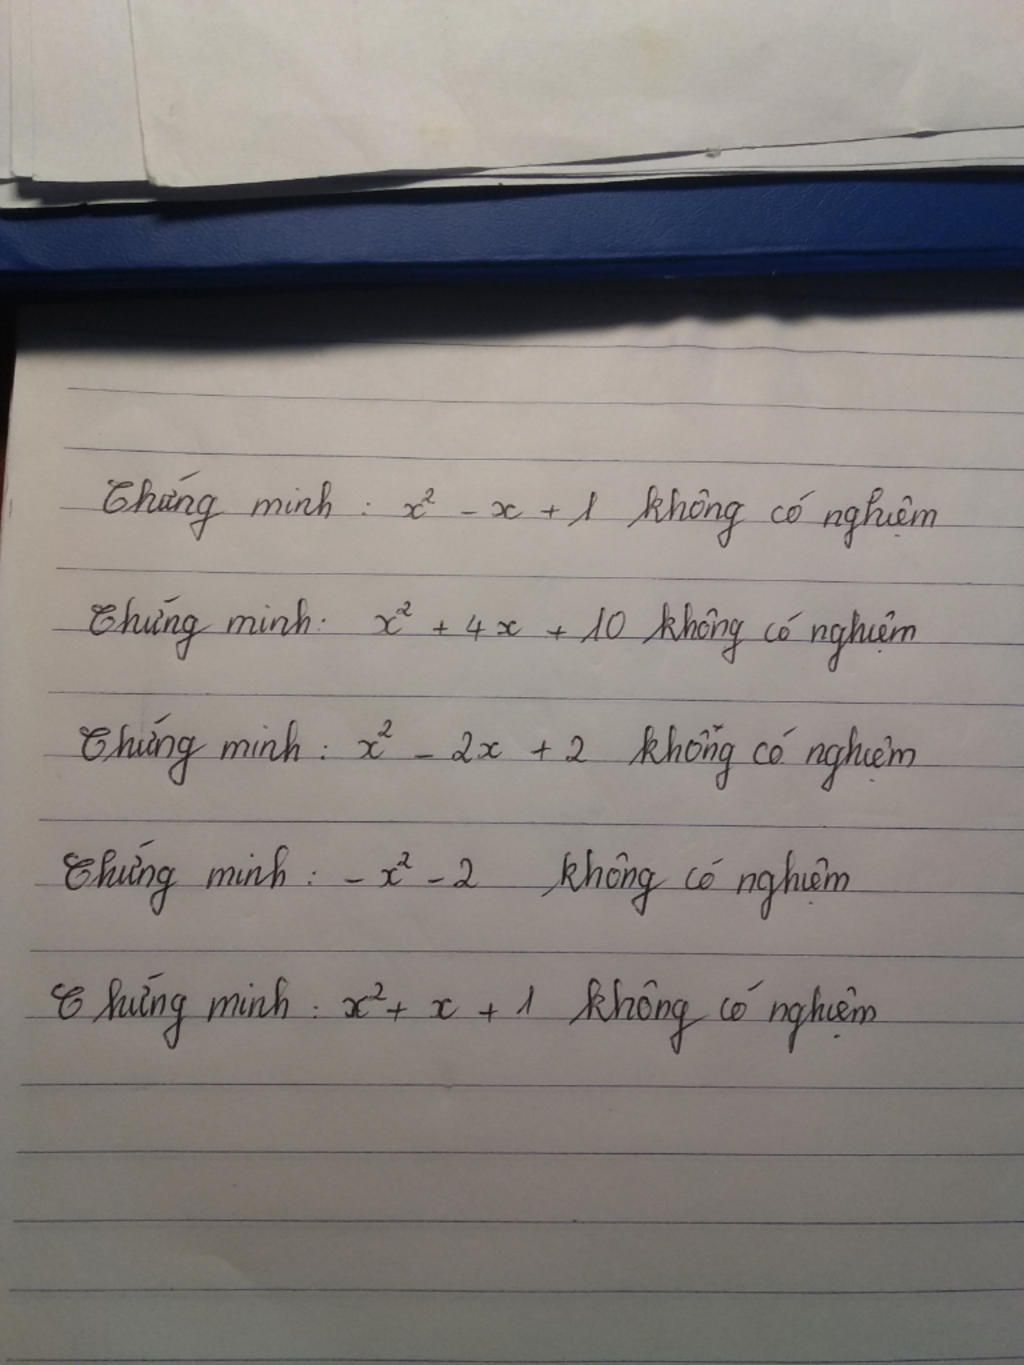 Chứng minh : x² - x + 1 không có nghiệm
Chứng minh : x² + 4x + 10 không có nghiệm
Chứng minh : x² - 2x + 2 không có nghiệm
Chứng minh : - x² - 2 không có nghiệm
Chứng minh : x² + x + 1 không có nghiệm